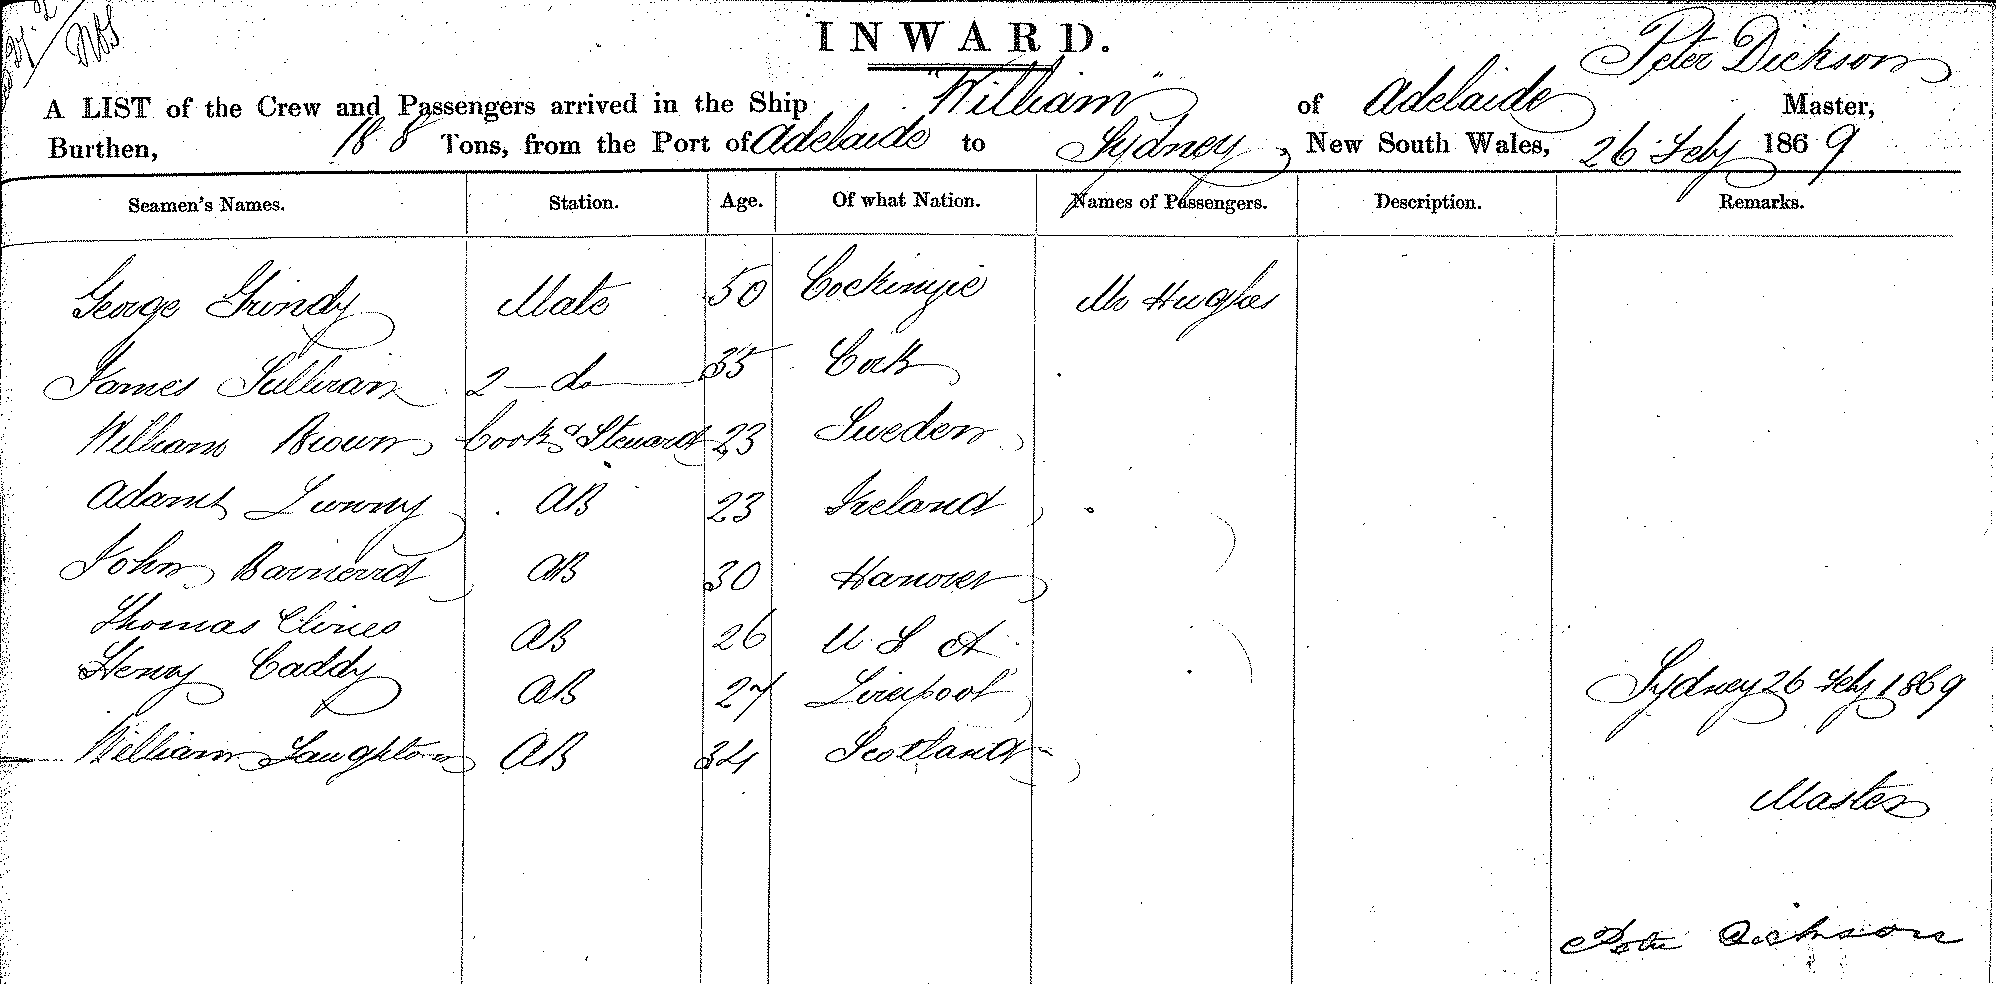 INWARD.
Peter Dickson
A LIST of the Crew and Passengers arrived in the Ship "William" of Adelaide Master,
Burthen, 188 Tons, from the Port of Adelaide to Sydney, New South Wales, 26 Feby 1869
Seamen's Names. Station. Age. Of what Nation. Names of Passengers. Description. Remarks.
George Grindy Mate 50 Cockinzie Mr Hughes
James Sullivan 2 - do 35 Cork
William Brown Cook & Steward 23 Sweden
Adams Lunny AB 23 Ireland
John AB 30 Hanover
Thomas Clines AB 26 U S A
Henry Caddy AB 27 Liverpool
Sydney 26 Feby 1869
William Laughton AB 34 Scotland
Master
Peter Dickson